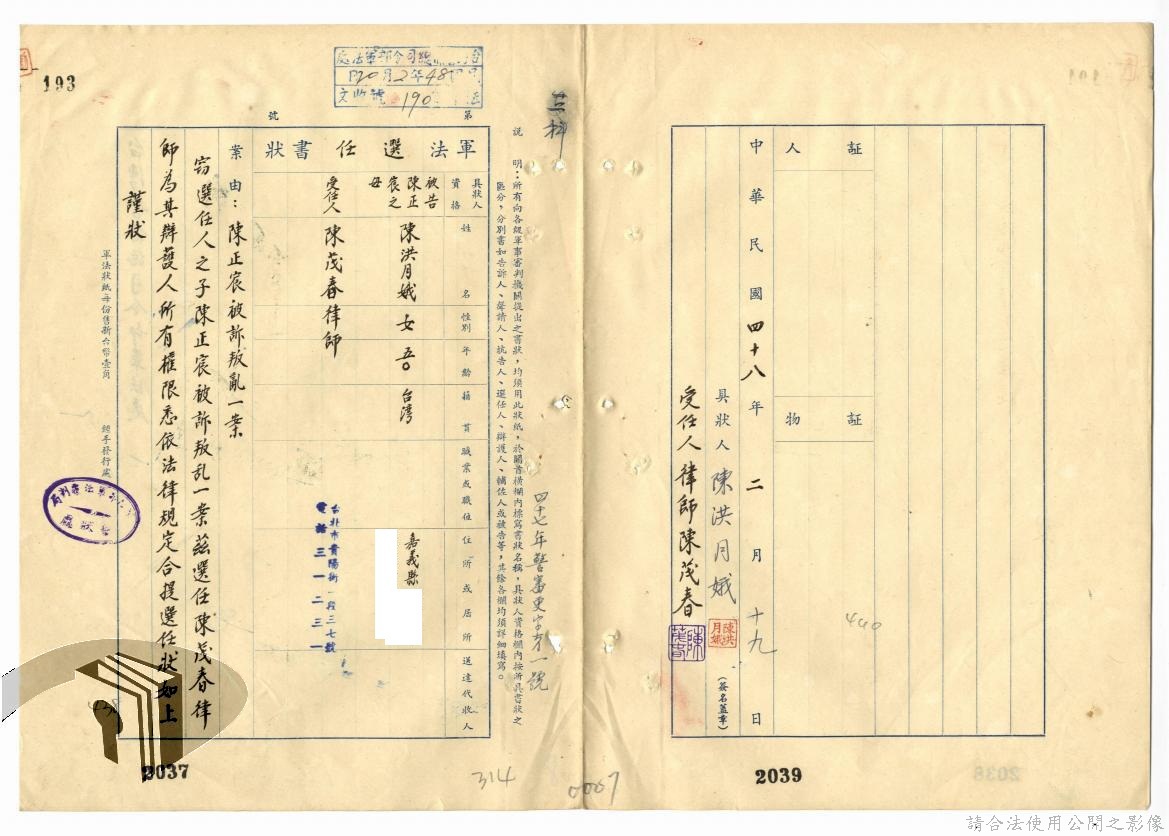 193
處法軍部令司總
48年2月20日
文收號 190
第 號
軍法選任書狀
具狀人資格 姓名 性別 年齡 籍貫 職業或職位 住所或居所 送達代收人
被告陳正宸之母 陳洪月娥 女 五〇 台灣 嘉義縣
受任人 陳茂春律師
台北市貴陽街一段三七號
電話三一二三一
案由：陳正宸被訴叛亂一案
窃選任人之子陳正宸被訴叛乱一案茲選任陳茂春律
師為其辯護人所有權限悉依法律規定合提選任狀如上
謹狀
軍法狀紙每份售新台幣壹角
說明：所有向各級軍事審判機關提出之書狀，均須用此狀紙，於關首橫欄內標寫書狀名稱，具狀人資格欄內按所具書狀之
區分，分別書如告訴人、聲請人、抗告人、選任人、辯護人、輔佐人或被告等，其餘各欄均須詳細填寫。
四十七年警審更字第一號
2037
314
0007
証人
証物
440
中華民國四十八年二月十九日
具狀人 陳洪月娥
陳洪月娥
(簽名蓋章)
受任人律師陳茂春
2039
請合法使用公開之影像